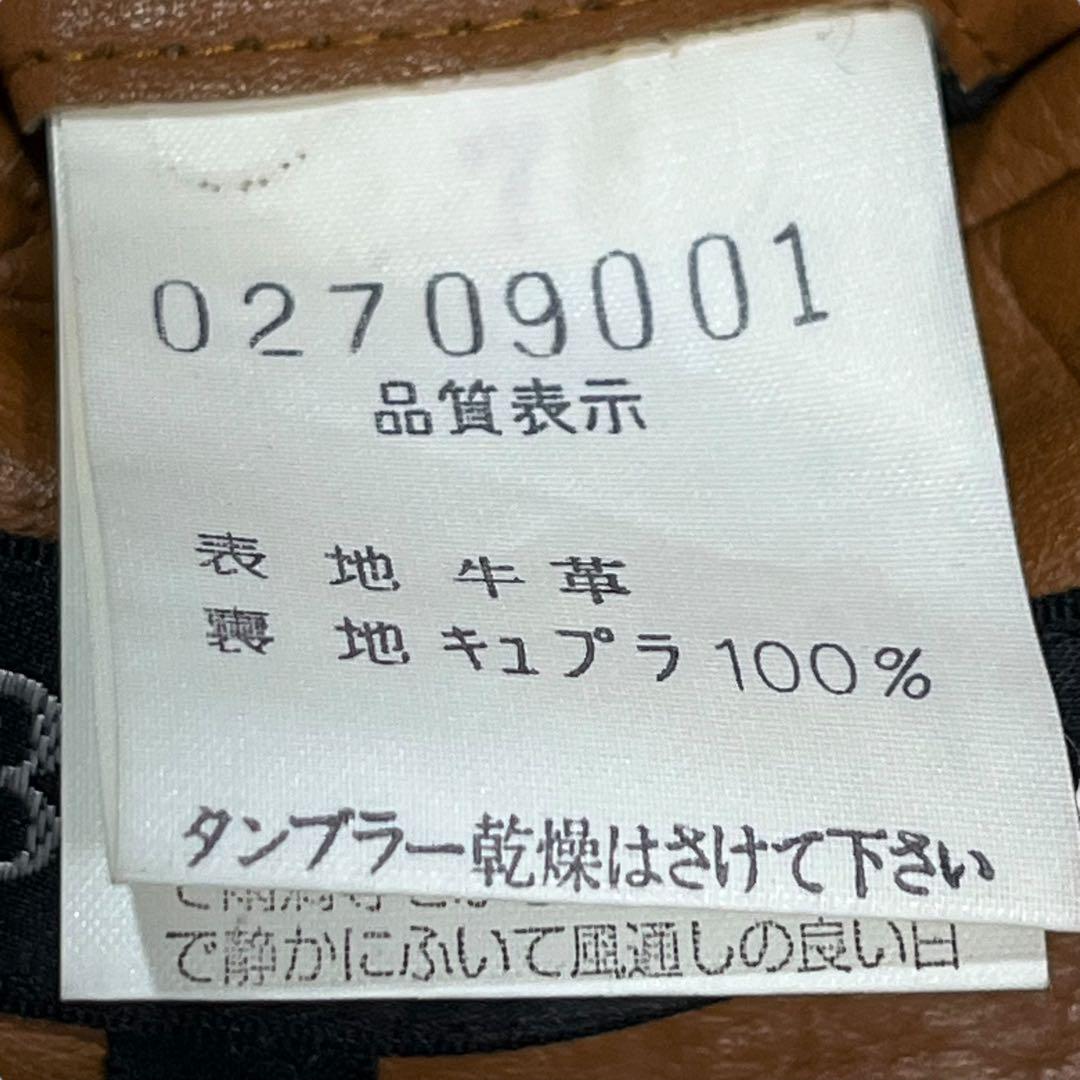 02709001
品質表示
表 地 牛革
裏 地 キュプラ 100%
タンブラー乾燥はさけて下さい
で静かにふいて風通しの良い日